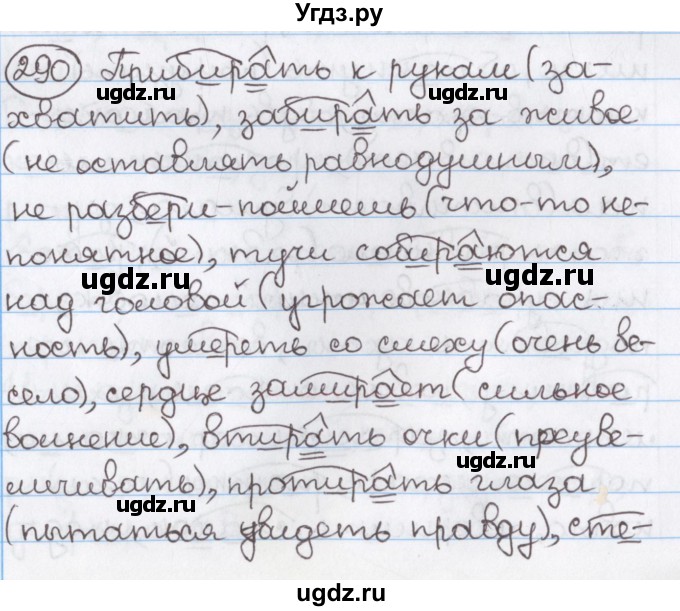 Угдз.ру
290 Прибирать к рукам (за-
ugdz.ru ugdz.ru
хватить), забирать за живое
(не оставлять равнодушным),
не разбери-поймешь (что-то не-
понятное), тучи собираются
ugdz.ru ugdz.ru
над головой (угрожает опас-
ность), умереть со смеху (очень ве-
ugdz.ru
село), сердце замирает (сильное
волнение), втирать очки (преуве-
ugdz.ru
личивать), протирать глаза
ugdz.ru
(пытаться увидеть правду), сте-
ugdz.ru